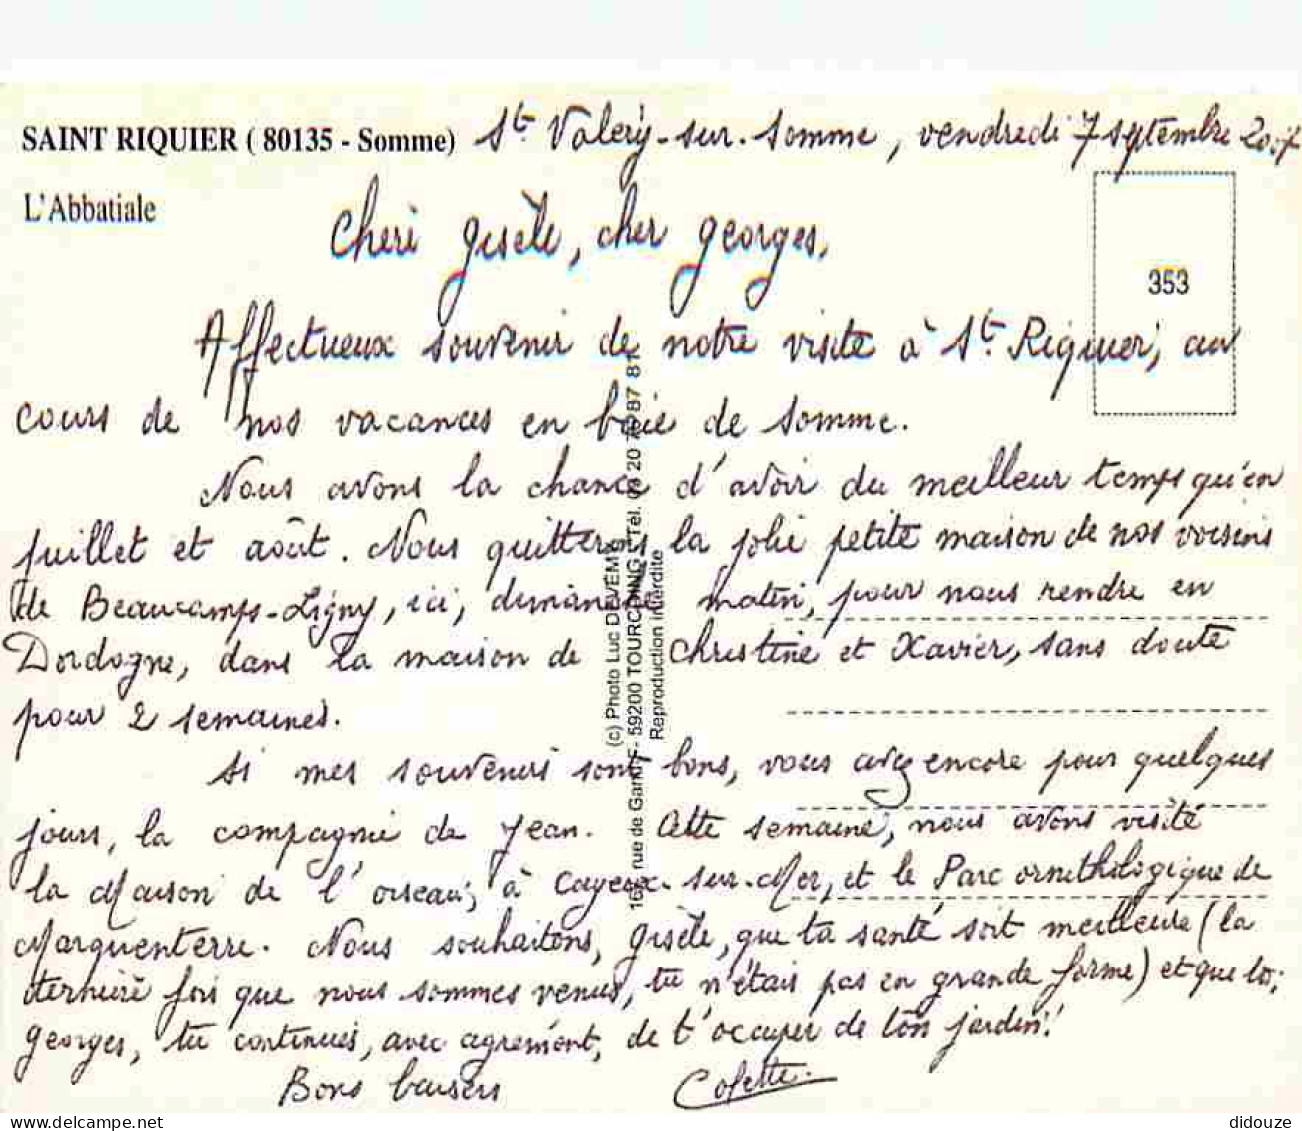 SAINT RIQUIER ( 80135 - Somme)
L'Abbatiale
St Valery-sur-Somme, vendredi 7 septembre 2007
353
Chère Gisèle, cher Georges,
Affectueux souvenir de notre visite à St. Riquier, au
cours de nos vacances en baie de Somme.
Nous avons la chance d'avoir du meilleur temps qu'en
juillet et août. Nous quitterons la jolie petite maison de nos voisins
de Beaucamps-Ligny, ici, dimanche matin, pour nous rendre en
Dordogne, dans la maison de Christine et Xavier, sans doute
pour 2 semaines.
Si mes souvenirs sont bons, vous avez encore pour quelques
jours, la compagnie de Jean. Cette semaine, nous avons visité
la Maison de l'oiseau, à Cayeux-sur-Mer, et le Parc ornithologique de
Marquenterre. Nous souhaitons, Gisèle, que ta santé soit meilleure (la
dernière fois que nous sommes venus, tu n'étais pas en grande forme) et que toi,
Georges, tu continues, avec agrément, de t'occuper de ton jardin!
Bons baisers
Colette.
(c) Photo Luc DEVEMY
rue de Gand - F - 59200 TOURCOING - Tél. 20 87 81
Reproduction interdite
didouze